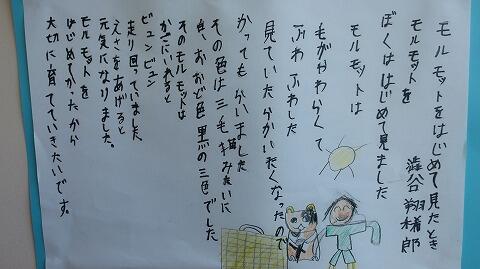 モルモットをはじめて見たとき
澁谷翔稀郎
モルモットを
ぼくははじめて見ました
モルモットは
毛がやわらくて
ふわふわした
見ていたらかいたくなったので
かってもらいました
その色は三毛猫みたいに
白、おおど色、黒の三色でした
そのモルモットは
かごにいれると
ビュンビュン
走り回っていました
えさをあげると
元気になりました。
モルモットを
はじめてかったから
大切に育てていきたいです。